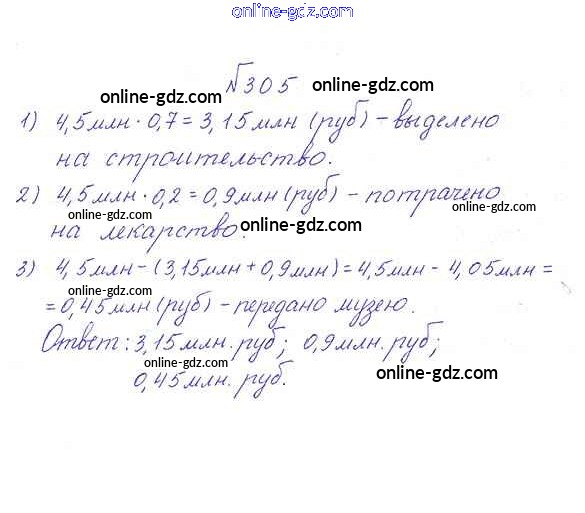 online-gdz.com
№305
online-gdz.com online-gdz.com
1) 4,5млн·0,7=3,15млн (руб) - выделено
на строительство.
online-gdz.com
online-gdz.com
2) 4,5млн·0,2=0,9млн (руб) - потрачено
online-gdz.com online-gdz.com online-gdz.com
на лекарство.
3) 4,5млн-(3,15млн+0,9млн)=4,5млн-4,05млн=
online-gdz.com online-gdz.com
=0,45млн (руб) - передано музею.
online-gdz.com online-gdz.com
Ответ: 3,15млн.руб; 0,9млн.руб;
online-gdz.com online-gdz.com
0,45млн.руб.